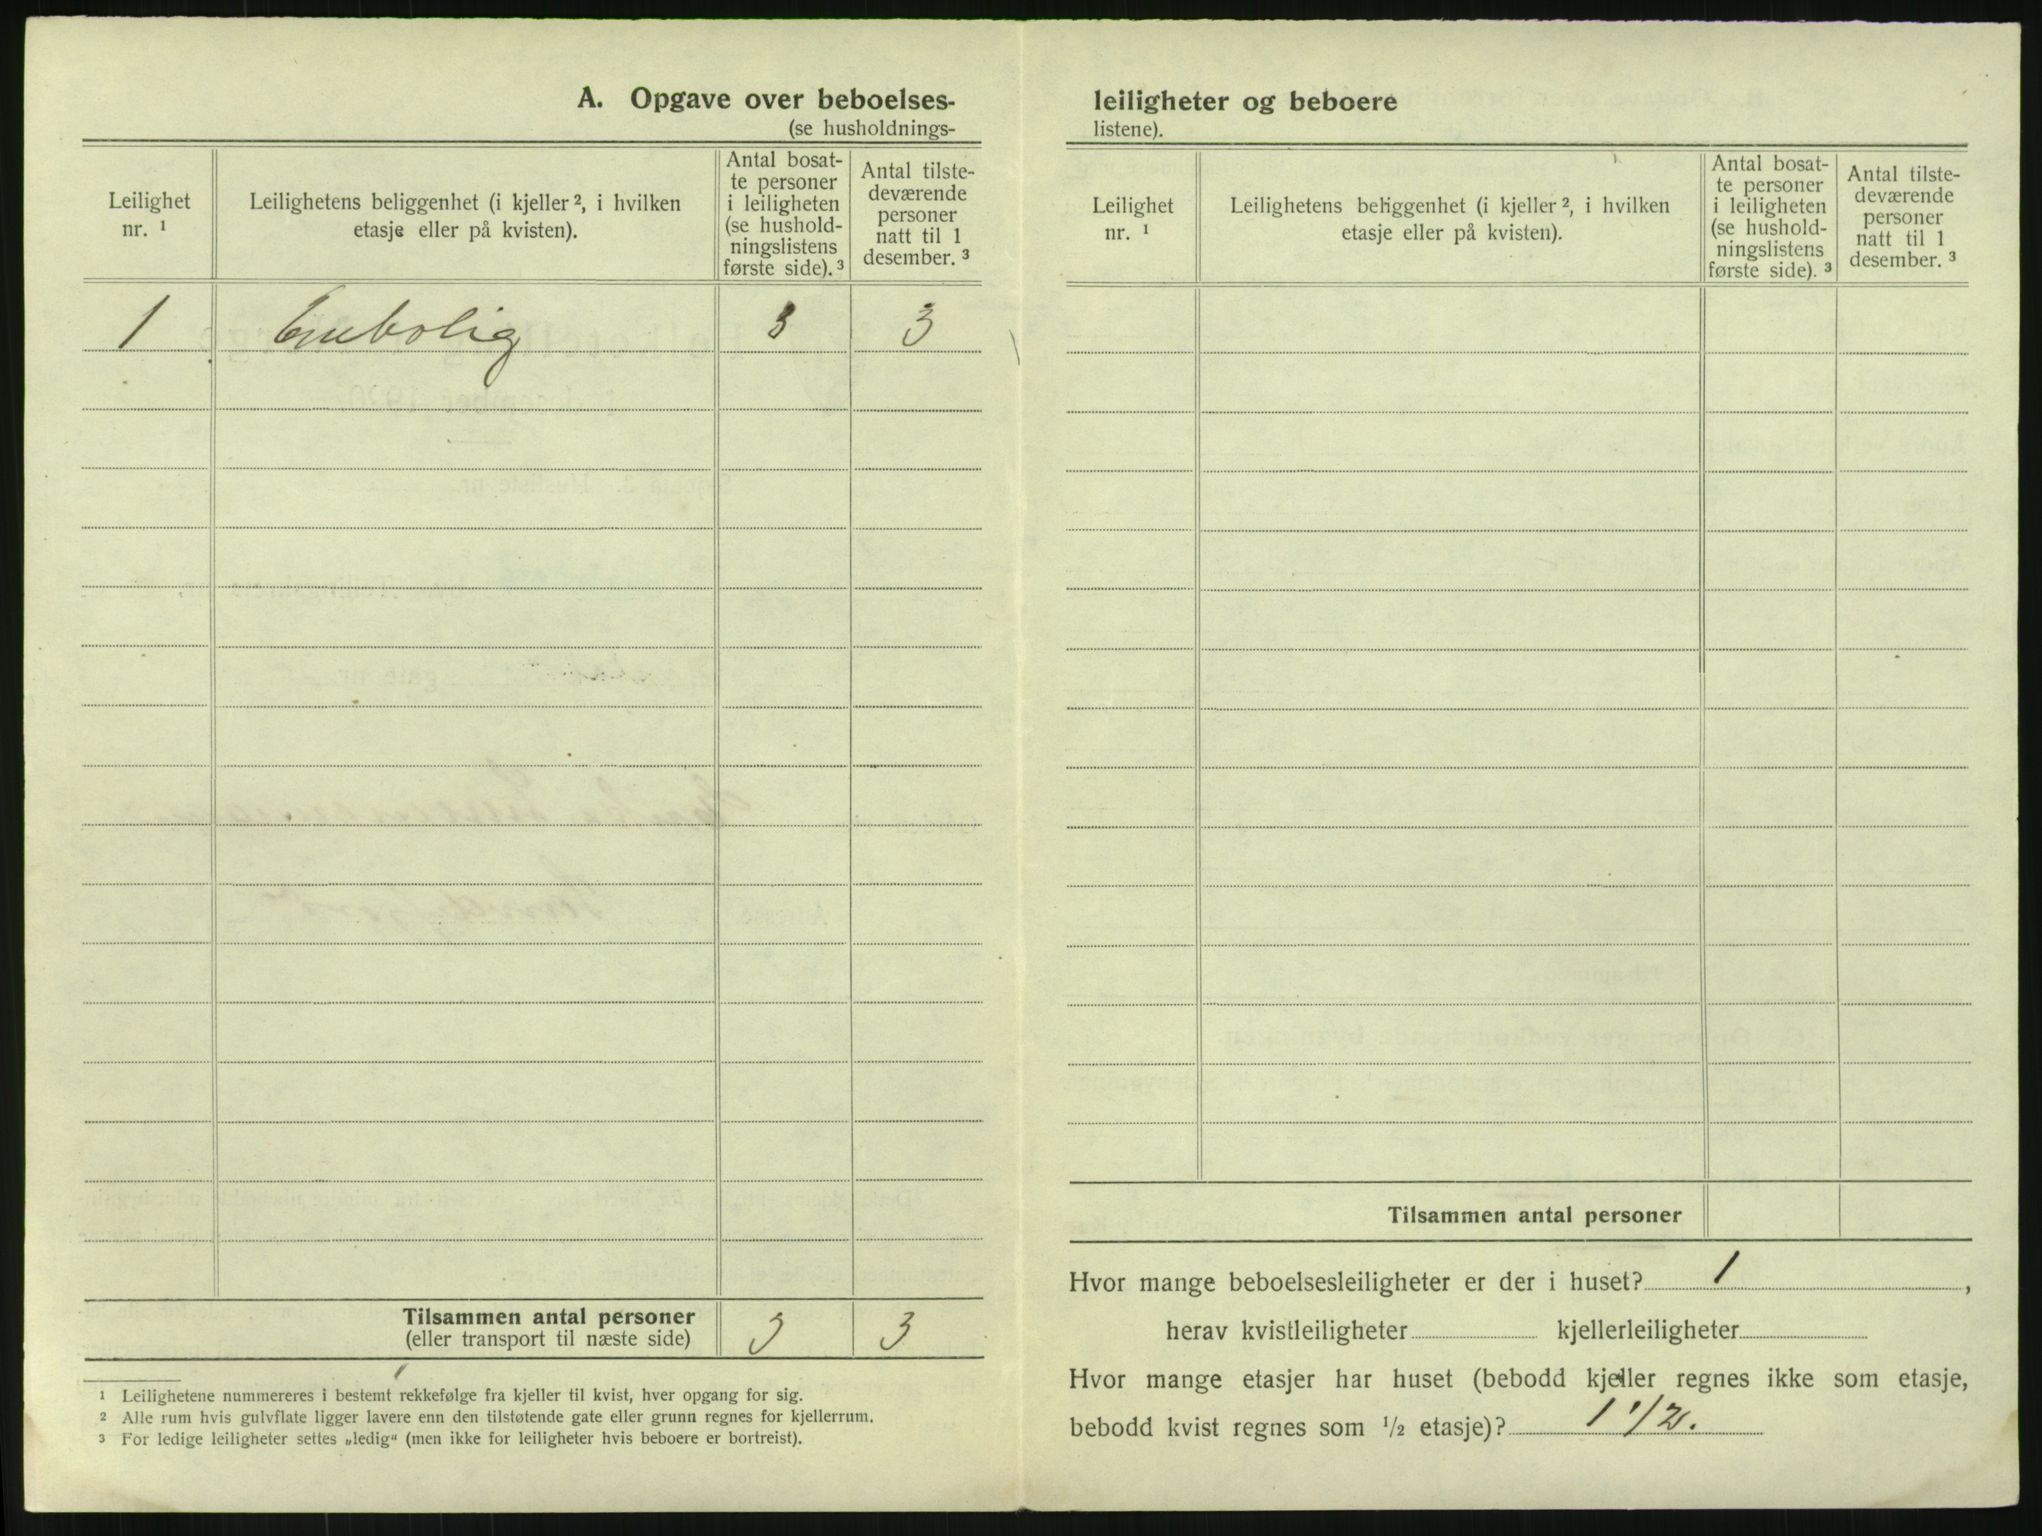 A. Opgave over beboelses-
(se husholdnings-
Leilighet nr. 1
Leilighetens beliggenhet (i kjeller 2, i hvilken etasje eller på kvisten).
Antal bosat-te personer i leiligheten (se hushold-ningslistens første side). 3
Antal tilste-deværende personer natt til 1 desember. 3
1 Enebolig 3 3
Tilsammen antal personer 3 3
(eller transport til næste side)
1 Leilighetene nummereres i bestemt rekkefølge fra kjeller til kvist, hver opgang for sig.
2 Alle rum hvis gulvflate ligger lavere enn den tilstøtende gate eller grunn regnes for kjellerrum.
3 For ledige leiligheter settes „ledig“ (men ikke for leiligheter hvis beboere er bortreist).
leiligheter og beboere
listene).
Leilighet nr. 1
Leilighetens beliggenhet (i kjeller 2, i hvilken etasje eller på kvisten).
Antal bosat-te personer i leiligheten (se hushold-ningslistens første side). 3
Antal tilste-deværende personer natt til 1 desember. 3
Tilsammen antal personer
Hvor mange beboelsesleiligheter er der i huset? 1,
herav kvistleiligheter kjellerleiligheter
Hvor mange etasjer har huset (bebodd kjeller regnes ikke som etasje,
bebodd kvist regnes som 1/2 etasje)? 1 1/2.